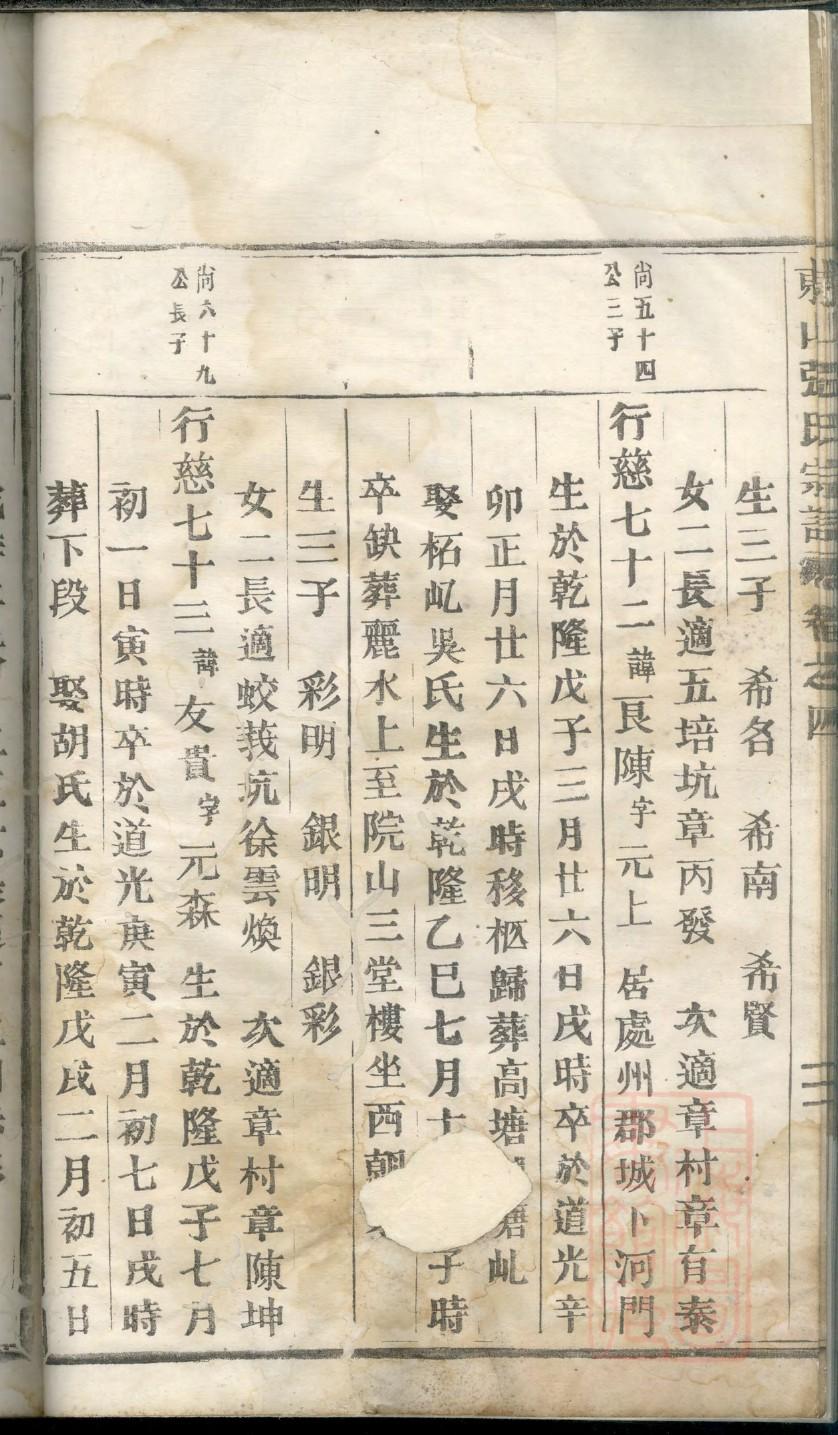 張氏宗譜 卷之四
生三子 希名 希南 希賢
女二長適五培坑章丙發 次適章村章有泰
尚五十四
公三子
行慈七十二諱艮陳字元上 居處州郡城卜河門
生於乾隆戊子三月廿六日戌時卒於道光辛
卯正月廿六日戌時移柩歸葬高塘塘乢
娶柘乢吳氏生於乾隆乙巳七月子時
卒缺葬麗水上至院山三堂樓坐西朝
生三子 彩明 銀明 銀彩
女二長適蛟莪坑徐雲煥 次適章村章陳坤
尚六十九
公長子
行慈七十三諱友貴字元森 生於乾隆戊子七月
初一日寅時卒於道光庚寅二月初七日戌時
葬下段 娶胡氏生於乾隆戊戌二月初五日